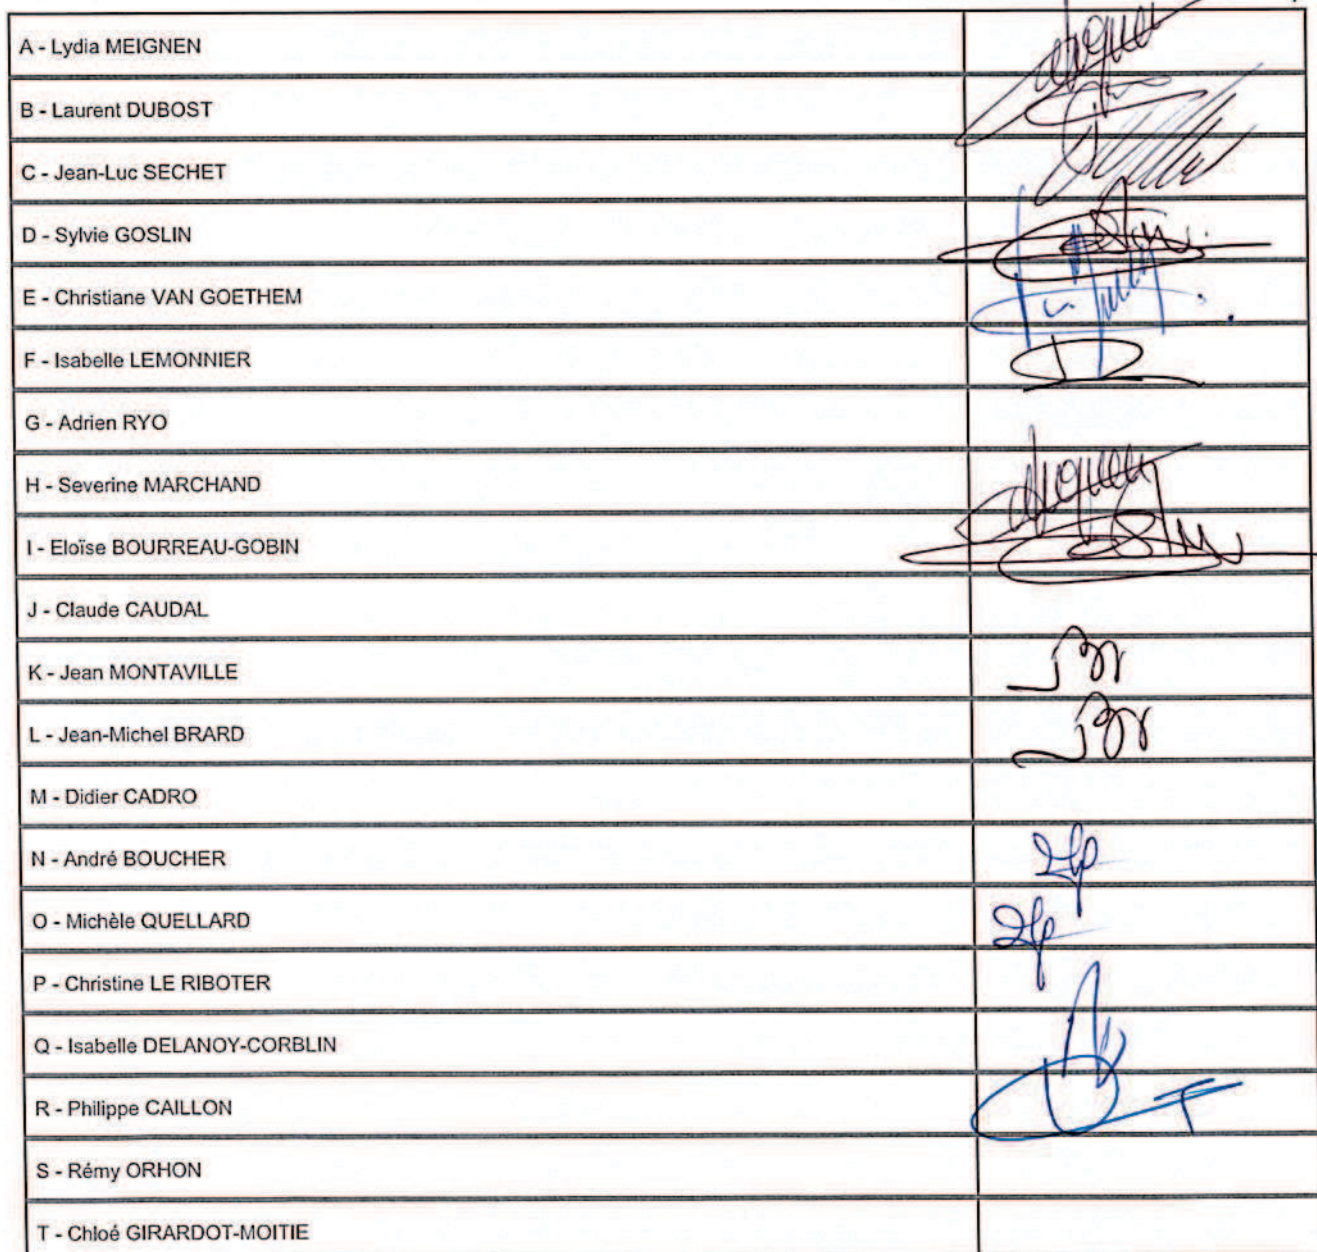 A - Lydia MEIGNEN
B - Laurent DUBOST
C - Jean-Luc SECHET
D - Sylvie GOSLIN
E - Christiane VAN GOETHEM
F - Isabelle LEMONNIER
G - Adrien RYO
H - Severine MARCHAND
I - Eloïse BOURREAU-GOBIN
J - Claude CAUDAL
K - Jean MONTAVILLE
L - Jean-Michel BRARD
M - Didier CADRO
N - André BOUCHER
O - Michèle QUELLARD
P - Christine LE RIBOTER
Q - Isabelle DELANOY-CORBLIN
R - Philippe CAILLON
S - Rémy ORHON
T - Chloé GIRARDOT-MOITIE